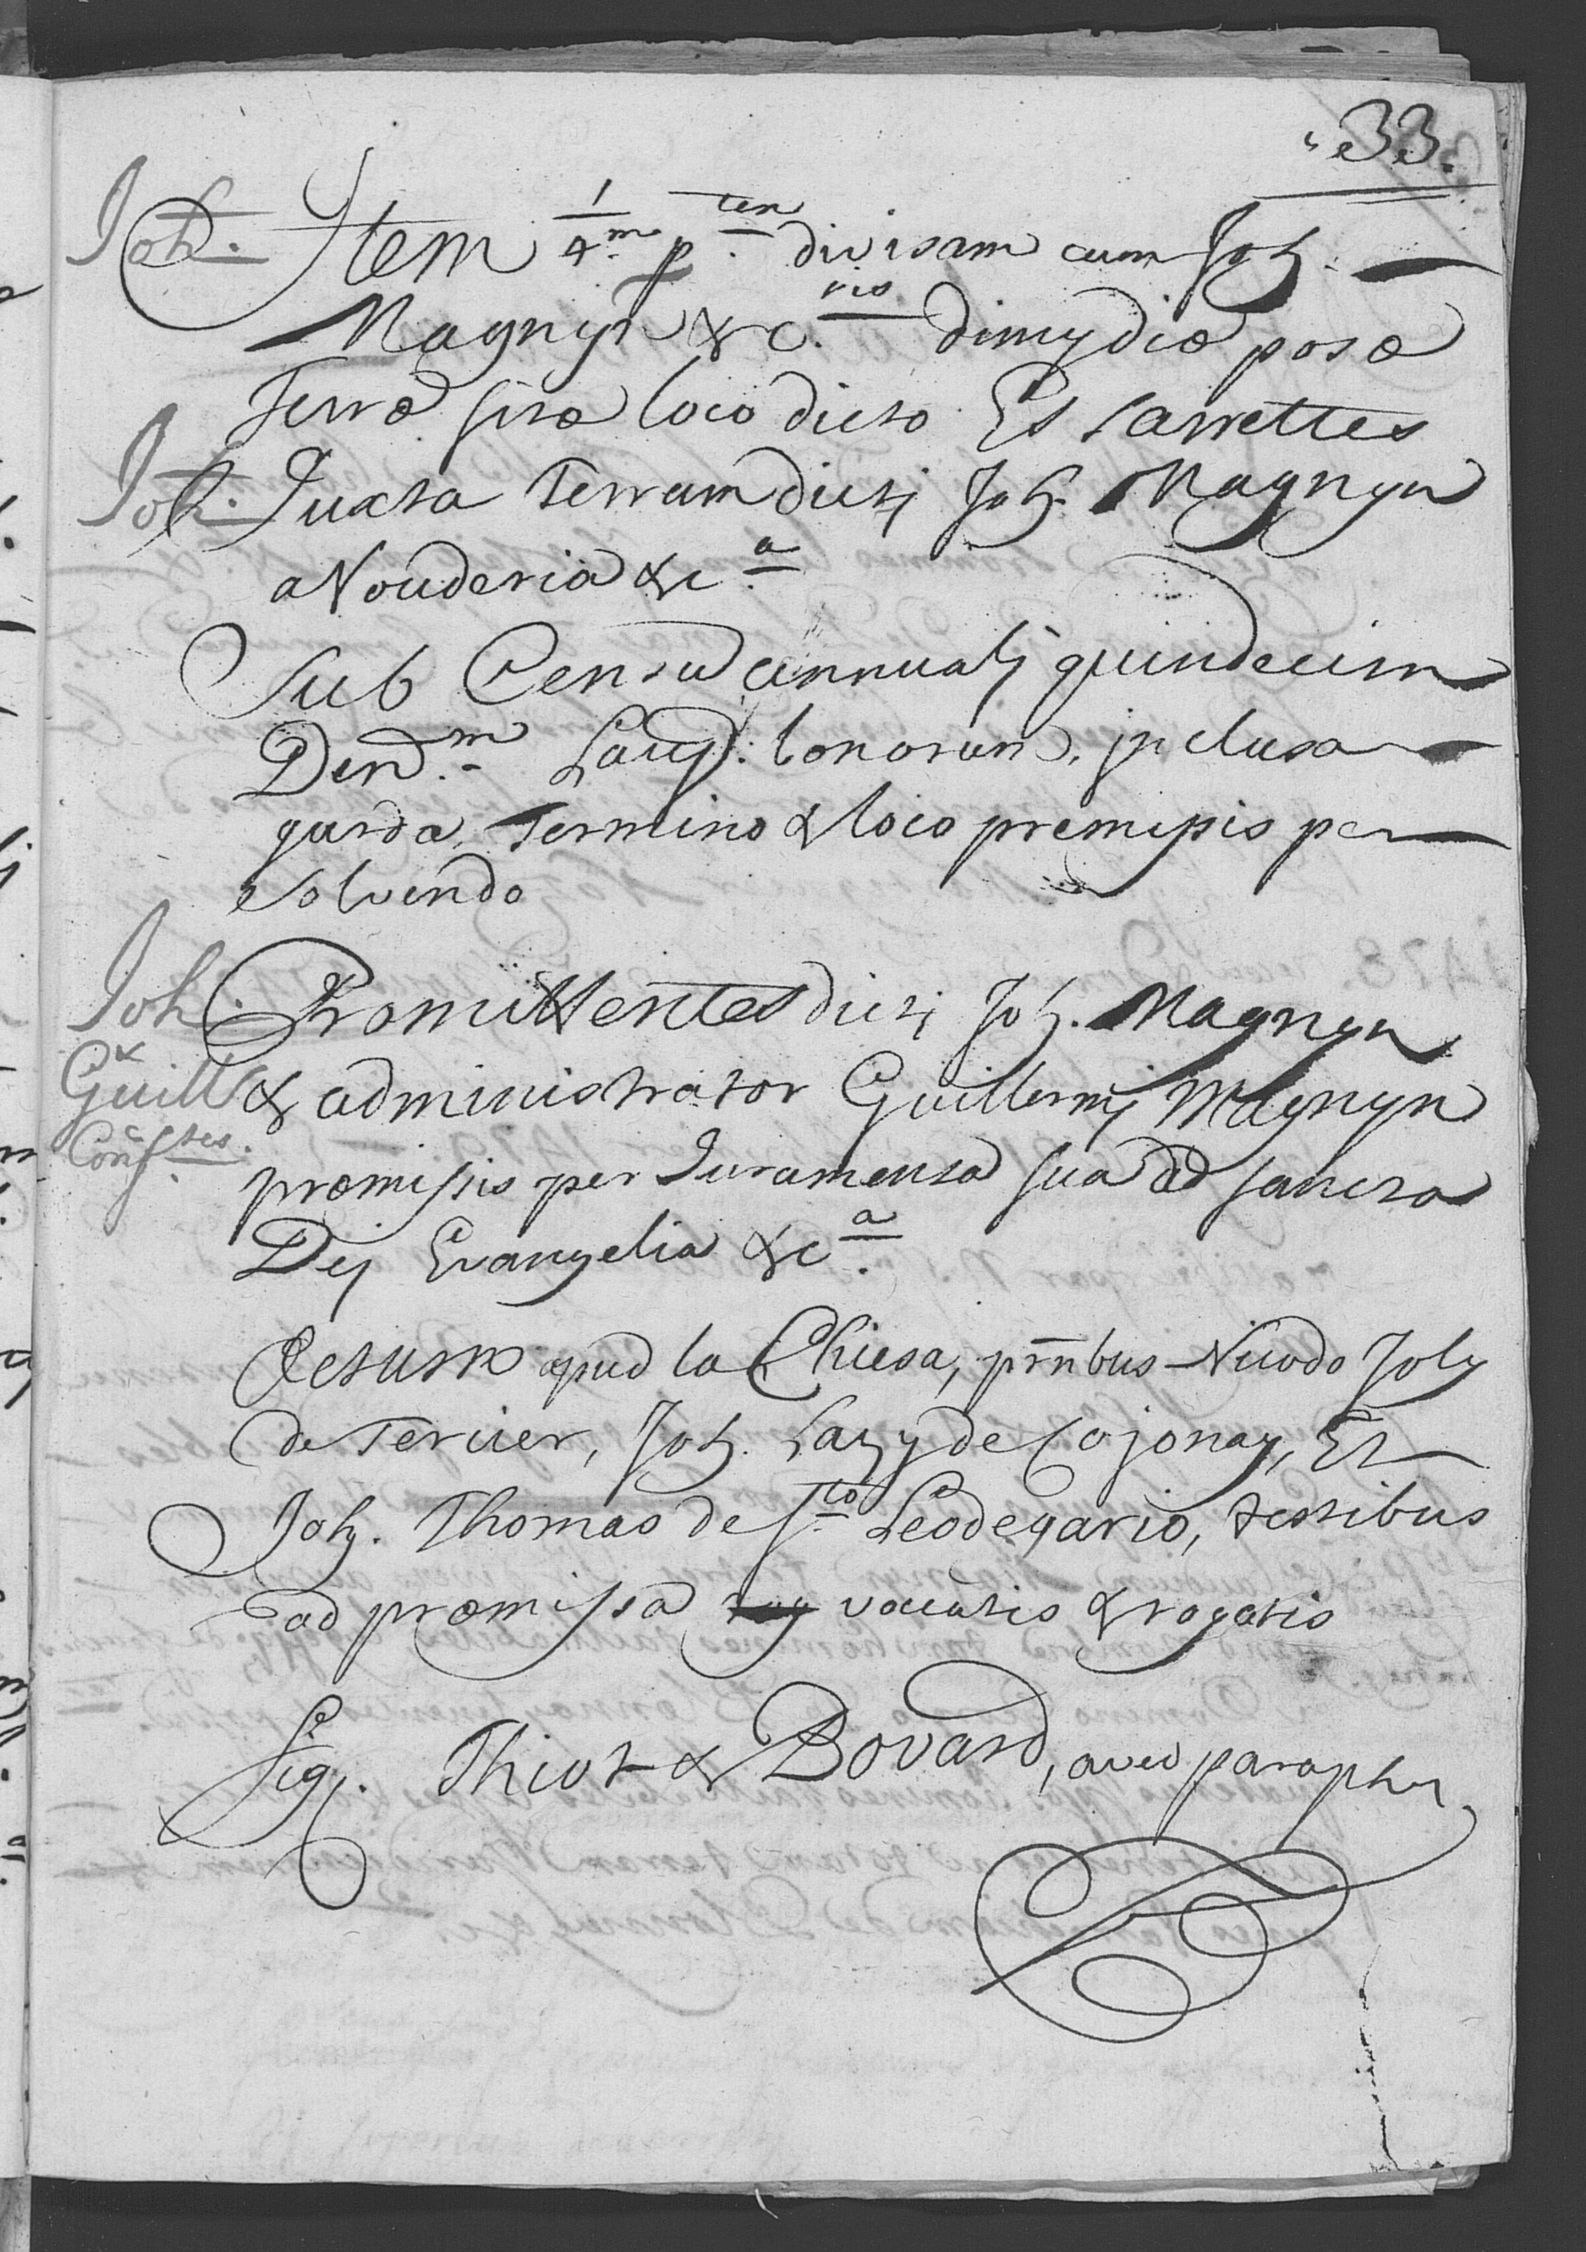 33.
Joh. Item 1/4.m p.ten divisam cum Joh.
Magnyn &c.ris dimydiæ posæ
Terræ sitæ loco dicto Es sarrettes
Joh. Juxta Terram dictj Joh. Magnyn
a Vouderia &c.a
Sub Censu annualj quindecim
Den.m Laus. bonorum, jnclusa
garda, Termino & loco premissis per
solvendo
Joh. Promittentes dictj Joh. Magnyn
& Guill. & administrator Guillermj Magnyn
Conf.tes præmissis per Juramenta sua ad sancta
Dej Evangelia &c.a
Actum apud la Chiesa, prñbus Nicodo Joly
de Tercier, Joh. Lazy de Cojonay, Et
Joh. Thomas de S.to Leodegario, testibus
ad præmissa vocatis & rogatis
Sig. Thiot & Bovard, avec paraphe